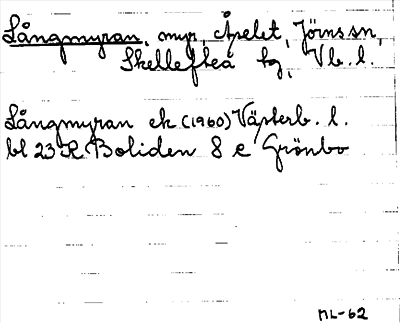 Långmyran, myr, Åpelet, Jörns sn,
Skellefteå kg, Vb. l.
Långmyran ek (1960) Västerb. l.
bl 23 K Boliden 8 e Grönbo
ML-62